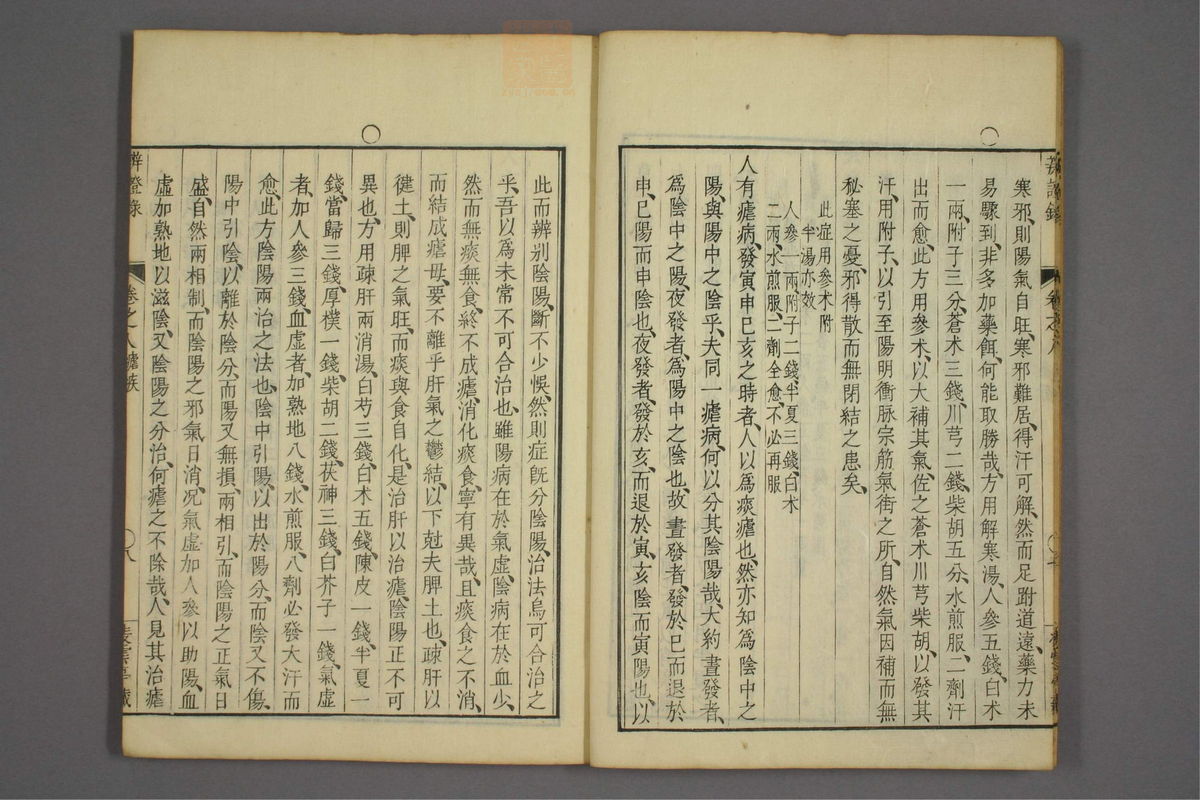 寒邪、則陽氣自旺、寒邪難居、得汗可解、然而足跗道遠、藥力未
易驟到、非多加藥餌、何能取勝哉、方用解寒湯、人參五錢、白术
一兩、附子三分、蒼术三錢、川芎二錢、柴胡五分、水煎服、二劑汗
出而愈、此方用參术、以大補其氣、佐之蒼术川芎柴胡、以發其
汗、用附子、以引至陽明衝脉宗筋氣街之所、自然氣因補而無
秘塞之憂、邪得散而無閉結之患矣、
此症用參术附
半湯亦效
人參一兩附子二錢、半夏三錢、白术
二兩、水煎服、二劑全愈、不必再服
人有瘧病、發寅申巳亥之時者、人以為痰瘧也、然亦知為陰中之
陽、與陽中之陰乎、夫同一瘧病、何以分其陰陽哉、大約晝發者、
為陰中之陽、夜發者、為陽中之陰也、故晝發者、發於巳而退於
申、巳陽而申陰也、夜發者、發於亥、而退於寅、亥陰而寅陽也、以
此而辨别陰陽、斷不少悞、然則症既分陰陽、治法烏可合治之
乎、吾以為未常不可合治也、雖陽病在於氣虛、陰病在於血少、
然而無痰無食、終不成瘧、消化痰食、寧有異哉、且痰食之不消、
而結成瘧母、要不離乎肝氣之鬱結、以下尅夫脾土也、疎肝以
健土、則脾之氣旺、而痰與食自化、是治肝以治瘧、陰陽正不可
異也、方用疎肝兩消湯、白芍三錢、白术五錢、陳皮一錢、半夏一
錢、當歸三錢、厚樸一錢、柴胡二錢、茯神三錢、白芥子一錢、氣虛
者、加人參三錢、血虛者、加熟地八錢、水煎服、八劑必發大汗而
愈、此方陰陽兩治之法也、陰中引陽、以出於陽分、而陰又不傷、
陽中引陰、以離於陰分、而陽又無損、兩相引、而陰陽之正氣日
盛、自然兩相制、而陰陽之邪氣日消、况氣虛加人參以助陽、血
虛加熟地以滋陰、又陰陽之分治、何瘧之不除哉、人見其治瘧
辨證錄
卷之八瘧疾
八